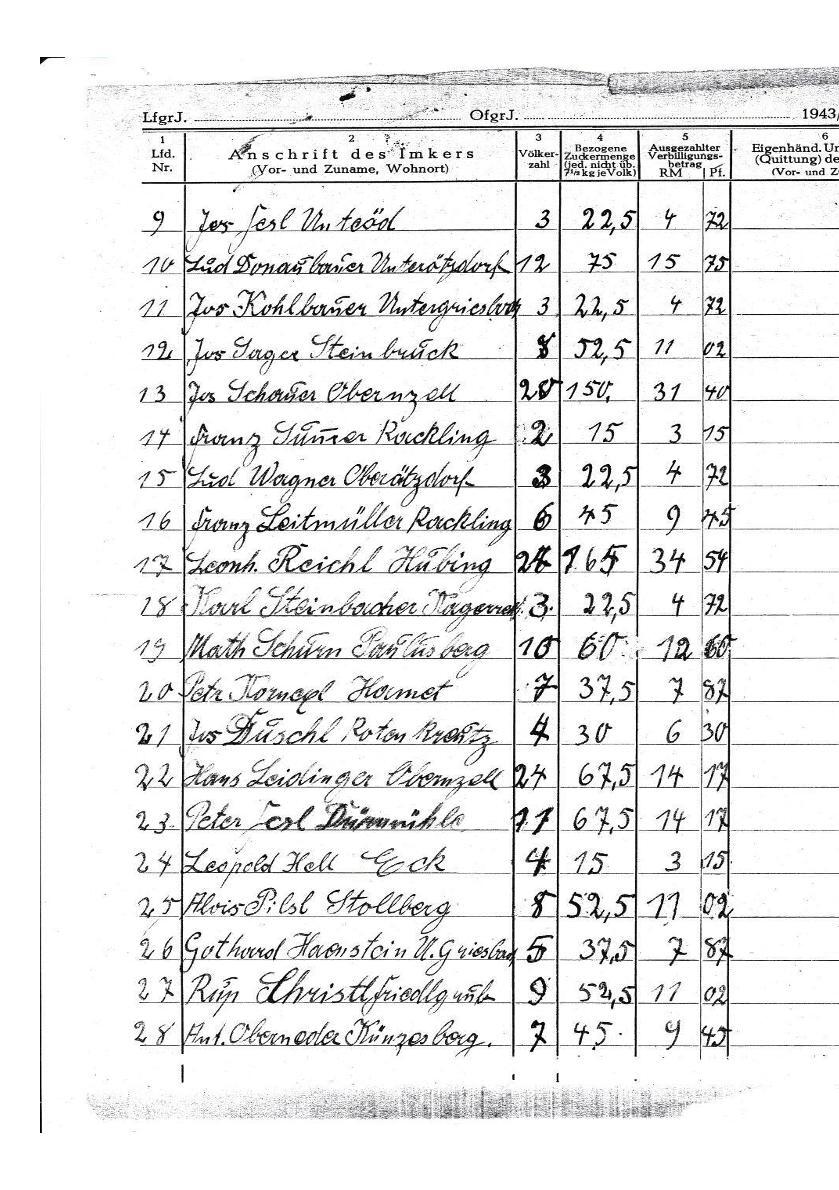 LfgrJ. OfgrJ. 1943/
1 Lfd. Nr. 2 Anschrift des Imkers (Vor- und Zuname, Wohnort) 3 Völkerzahl 4 Bezogene Zuckermenge (jed. nicht üb. 7½ kg je Volk) 5 Ausgezahlter Verbilligungsbetrag RM Pf. 6 Eigenhänd. Un (Quittung) de (Vor- und Zu
9 Jos Jesl Unteöd 3 22,5 4 72
10 Lud Donaubauer Unterötzdorf 12 75 15 75
11 Jos Kohlbauer Untergriesbach 3 22,5 4 72
12 Jos Sager Steinbruck 8 52,5 11 02
13 Jos Schauer Obernzell 20 150, 31 40
14 Franz Rackling 2 15 3 15
15 Lud Wagner Oberötzdorf 3 22,5 4 72
16 Franz Leitmüller Rackling 6 45 9 45
17 Leonh. Reichl Hubing 165 34 54
18 Karl Steinbacher 3. 22,5 4 72
19 Math Schurn Paulusberg 10 60 12 60
20 Petr Hamet 7 37,5 7 87
21 Jos Duschl Roten Kreutz 4 30 6 30
22 Hans Leidinger Obernzell 24 67,5 14 17
23. Peter Jesl 11 67,5 14 17
24 Leopold Hell Eck 4 15 3 15
25 Alois Pilsl Stollberg 8 52,5 11 02
26 Gothard Haenstein U. Griesbach 5 37,5 7 87
27 Rup Christl Friedlgrub 9 52,5 11 02
28 Ant. Oberneder Künzesberg. 7 45. 9 45